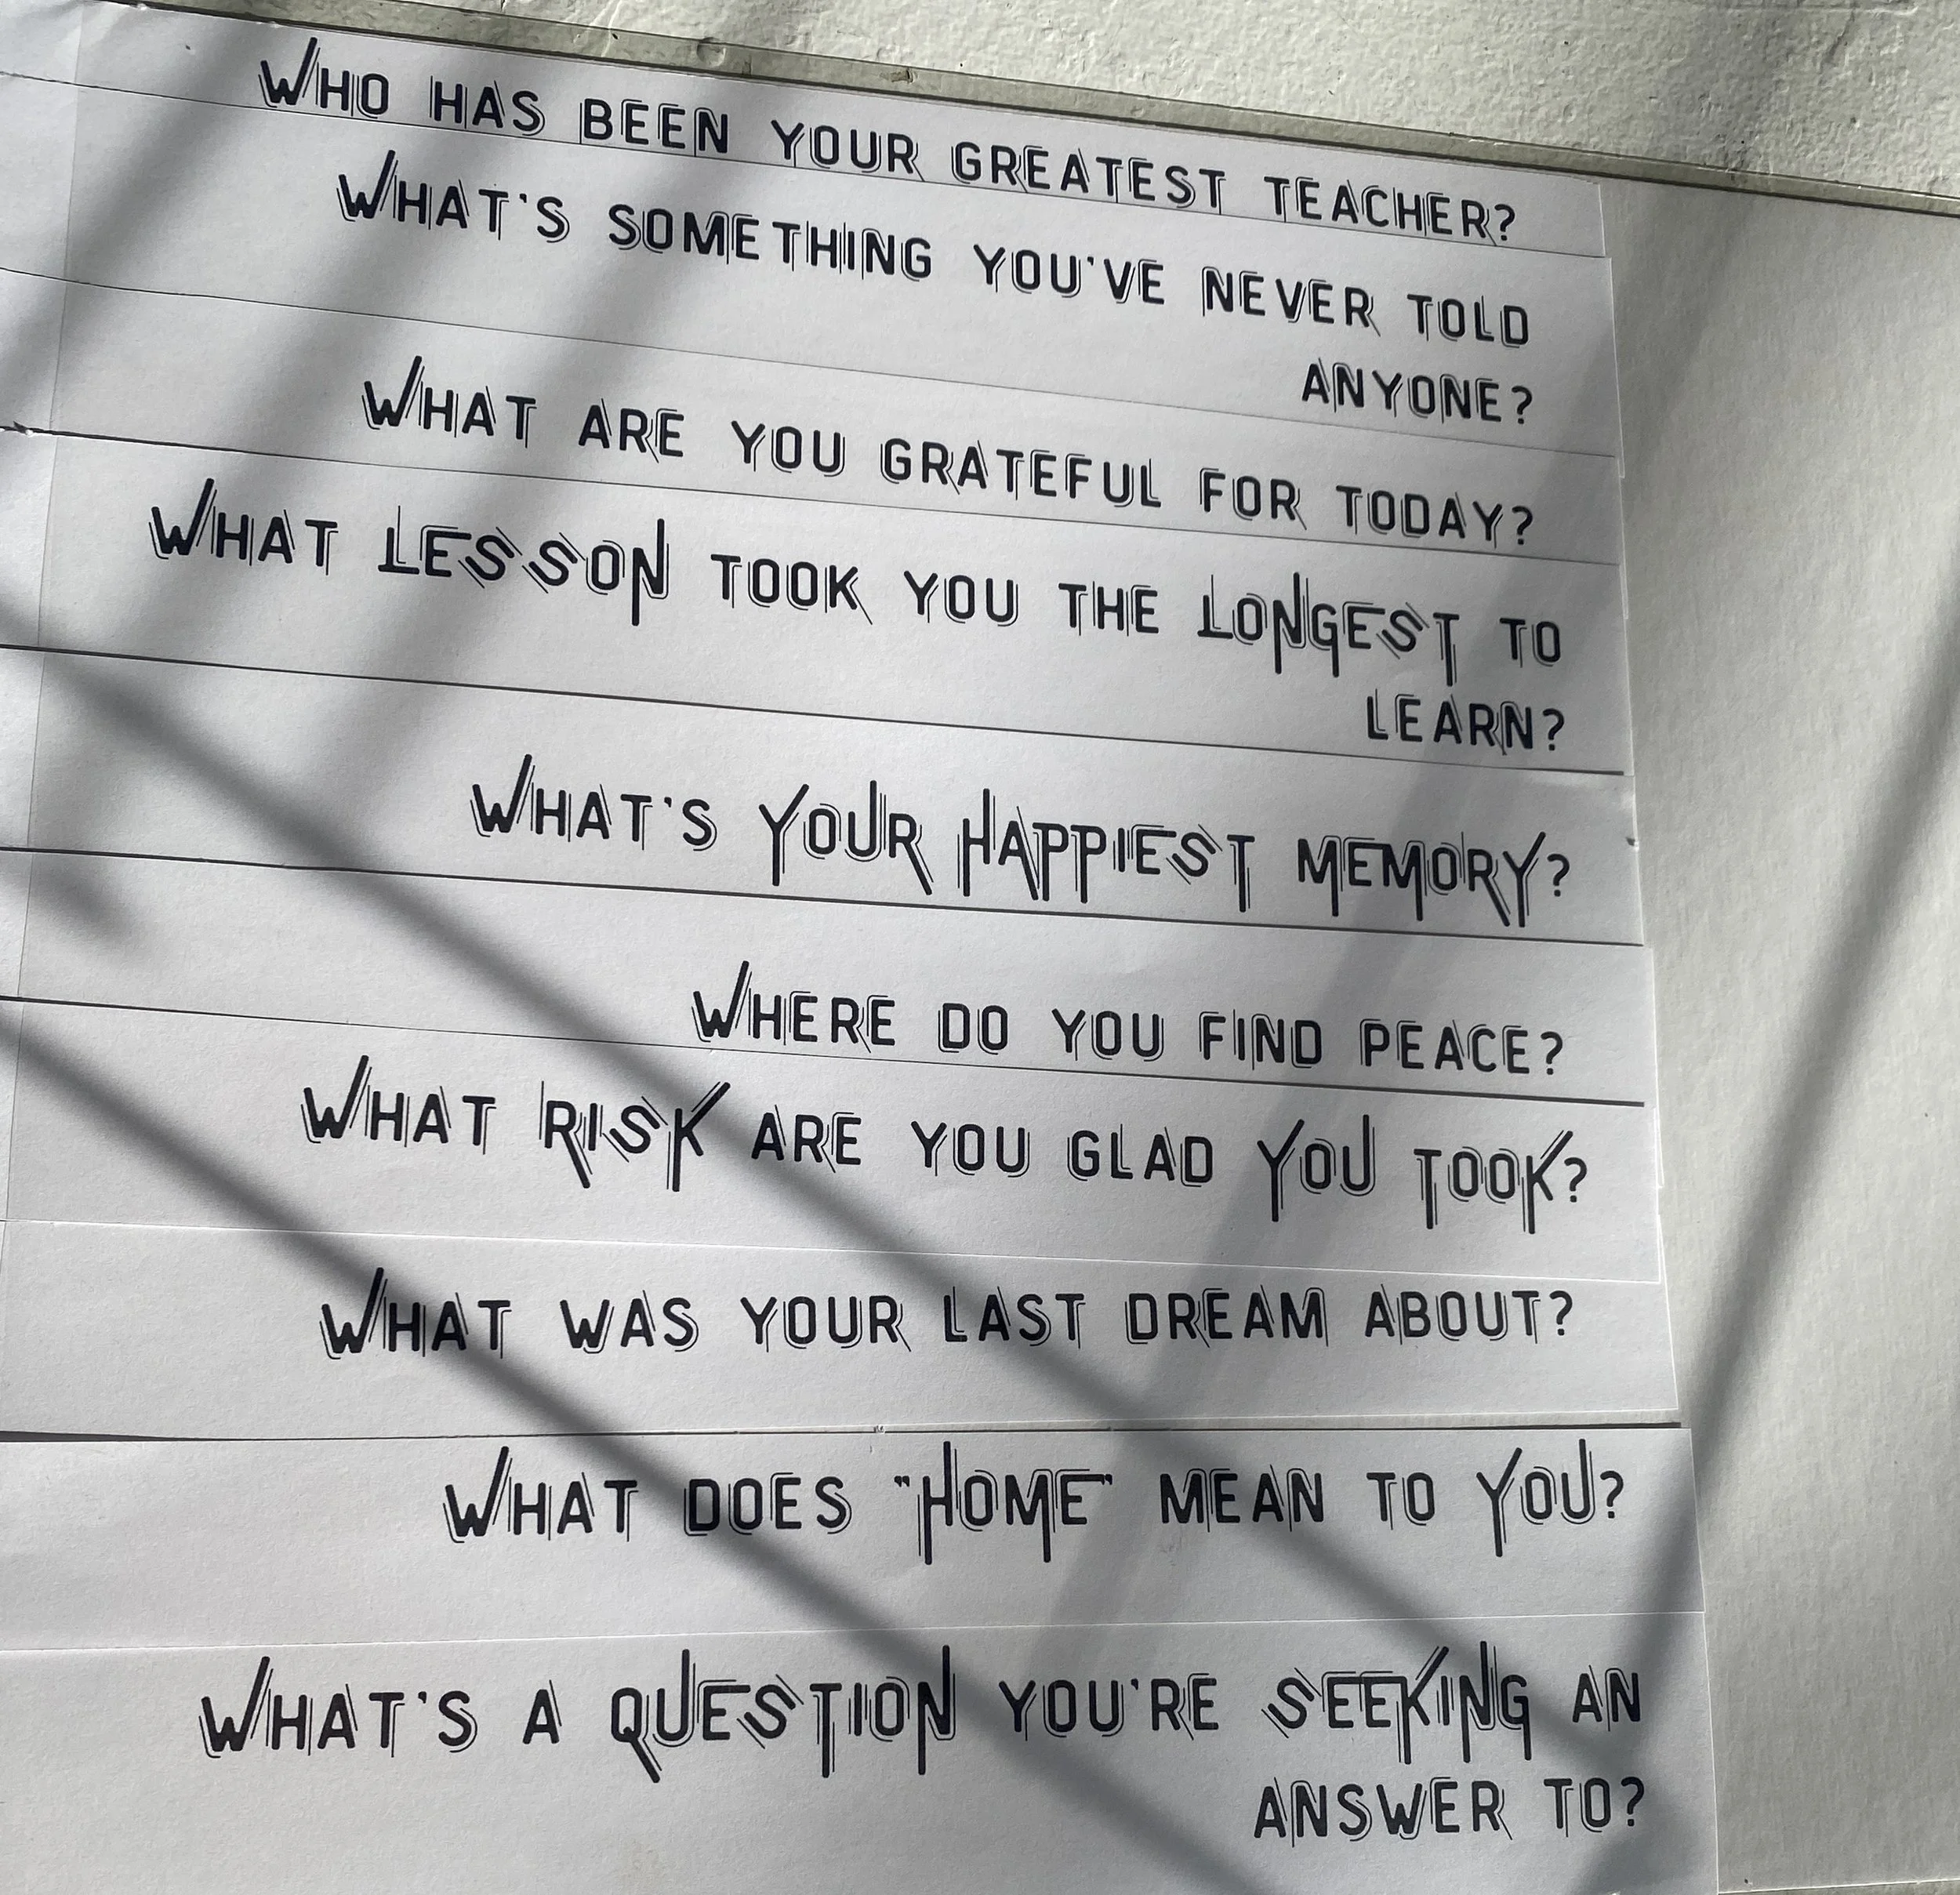 WHO HAS BEEN YOUR GREATEST TEACHER?
WHAT'S SOMETHING YOU'VE NEVER TOLD
ANYONE?
WHAT ARE YOU GRATEFUL FOR TODAY?
WHAT LESSON TOOK YOU THE LONGEST TO
LEARN?
WHAT'S YOUR HAPPIEST MEMORY?
WHERE DO YOU FIND PEACE?
WHAT RISK ARE YOU GLAD YOU TOOK?
WHAT WAS YOUR LAST DREAM ABOUT?
WHAT DOES "HOME" MEAN TO YOU?
WHAT'S A QUESTION YOU'RE SEEKING AN
ANSWER TO?